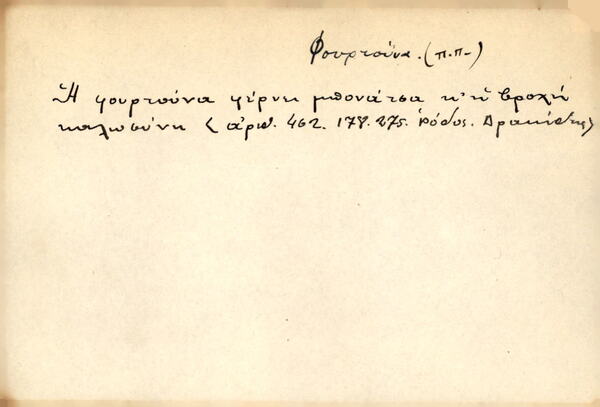 Φουρτούνα. (π.π.)
Ἡ φουρτούνα φέρνει μπονάτσα κ' ἡ βροχή
καλωσύνη (ἀριθ. 462. 178. 275. Ρόδος. Δρακίδης)